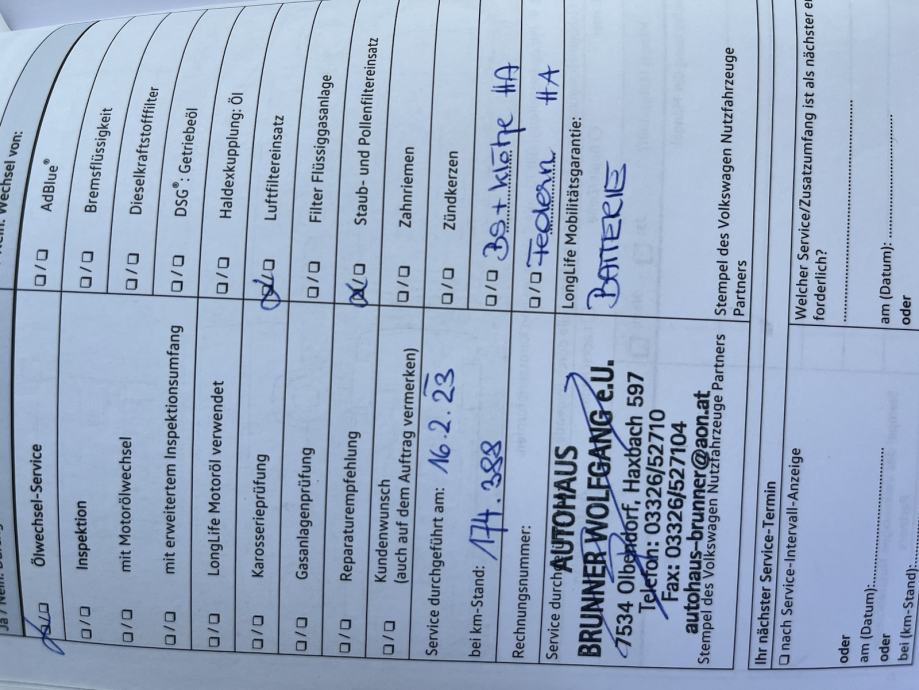 Wechsel von:
Ölwechsel-Service
Inspektion
mit Motorölwechsel
mit erweitertem Inspektionsumfang
LongLife Motoröl verwendet
Karosserieprüfung
Gasanlagenprüfung
Reparaturempfehlung
Kundenwunsch
(auch auf dem Auftrag vermerken)
Service durchgeführt am: 16.2.23
bei km-Stand: 174.388
Rechnungsnummer:
Service durch
AUTOHAUS
BRUNNER WOLFGANG e.U.
7534 Olbendorf, Haxbach 597
Telefon: 03326/52710
Fax: 03326/527104
autohaus-brunner@aon.at
Stempel des Volkswagen Nutzfahrzeuge Partners
AdBlue®
Bremsflüssigkeit
Dieselkraftstofffilter
DSG®: Getriebeöl
Haldexkupplung: Öl
Luftfiltereinsatz
Filter Flüssiggasanlage
Staub- und Pollenfiltereinsatz
Zahnriemen
Zündkerzen
BS + Klötze HA
Federn HA
LongLife Mobilitätsgarantie:
BATTERIE
Stempel des Volkswagen Nutzfahrzeuge
Partners
Ihr nächster Service-Termin
nach Service-Intervall-Anzeige
oder
am (Datum):
oder
bei (km-Stand):
Welcher Service/Zusatzumfang ist als nächster
forderlich?
am (Datum):
oder